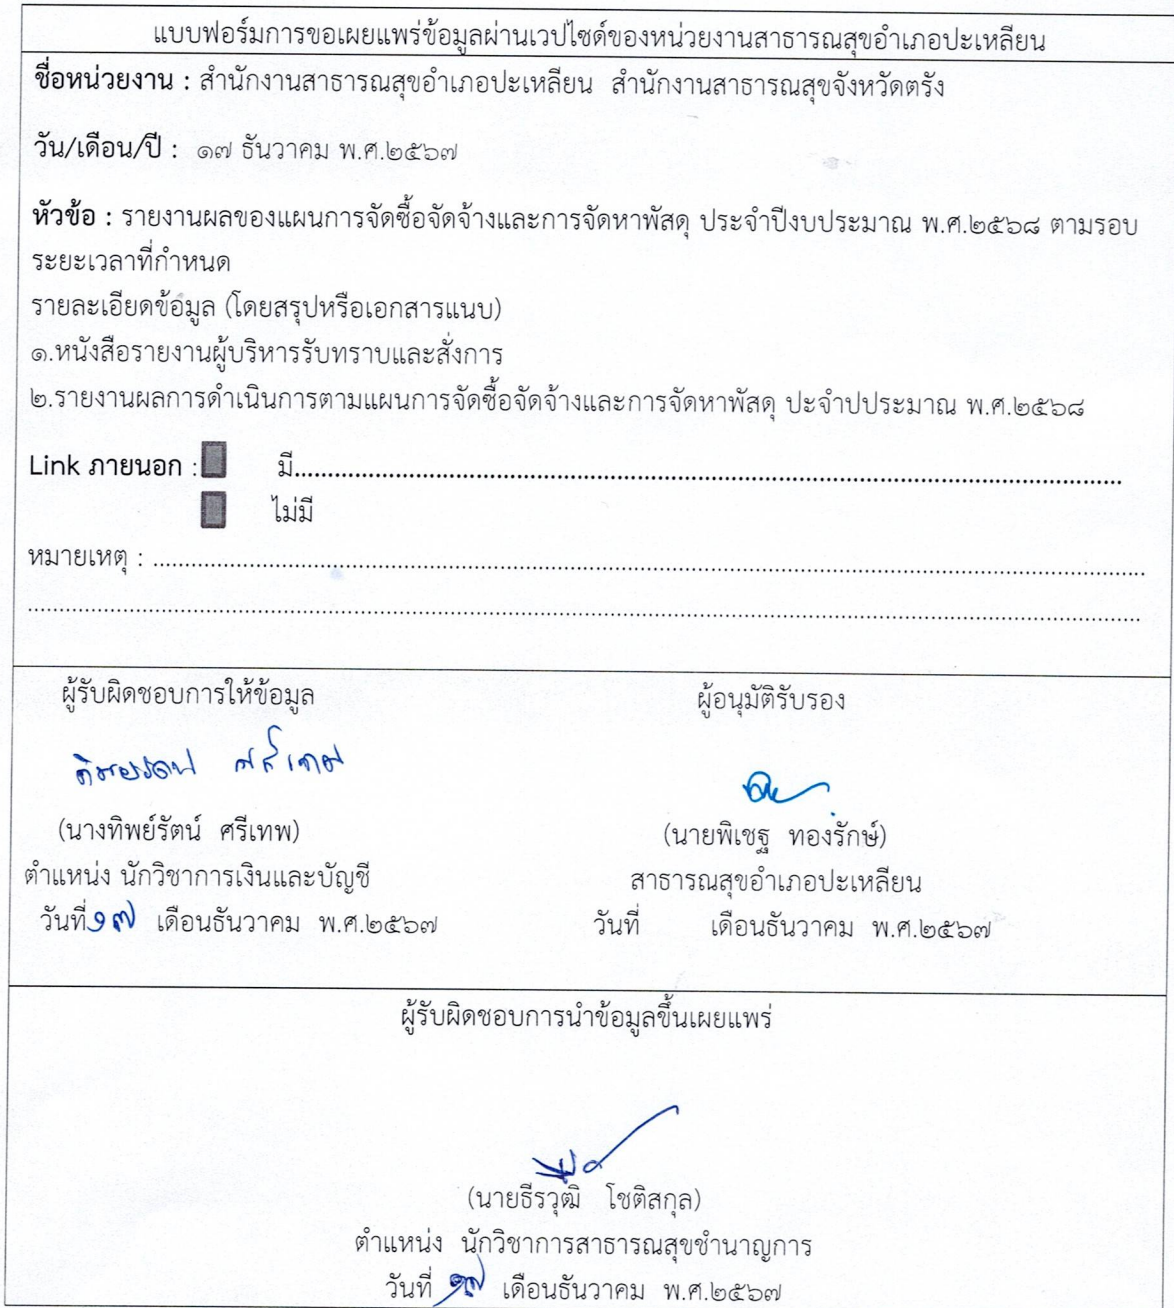 แบบฟอร์มการขอเผยแพร่ข้อมูลผ่านเวปไซด์ของหน่วยงานสาธารณสุขอำเภอปะเหลียน
ชื่อหน่วยงาน : สำนักงานสาธารณสุขอำเภอปะเหลียน สำนักงานสาธารณสุขจังหวัดตรัง
วัน/เดือน/ปี : ๑๗ ธันวาคม พ.ศ.๒๕๖๗
หัวข้อ : รายงานผลของแผนการจัดซื้อจัดจ้างและการจัดหาพัสดุ ประจำปีงบประมาณ พ.ศ.๒๕๖๘ ตามรอบ
ระยะเวลาที่กำหนด
รายละเอียดข้อมูล (โดยสรุปหรือเอกสารแนบ)
๑.หนังสือรายงานผู้บริหารรับทราบและสั่งการ
๒.รายงานผลการดำเนินการตามแผนการจัดซื้อจัดจ้างและการจัดหาพัสดุ ปะจำปประมาณ พ.ศ.๒๕๖๘
Link ภายนอก : มี............................................................
ไม่มี
หมายเหตุ : ............................................................
............................................................
ผู้รับผิดชอบการให้ข้อมูล ผู้อนุมัติรับรอง
ทิพยรัตน์ ศรีเทพ
(นางทิพย์รัตน์ ศรีเทพ) (นายพิเชฐ ทองรักษ์)
ตำแหน่ง นักวิชาการเงินและบัญชี สาธารณสุขอำเภอปะเหลียน
วันที่ ๑๗ เดือนธันวาคม พ.ศ.๒๕๖๗ วันที่ เดือนธันวาคม พ.ศ.๒๕๖๗
ผู้รับผิดชอบการนำข้อมูลขึ้นเผยแพร่
(นายธีรวุฒิ โชติสกุล)
ตำแหน่ง นักวิชาการสาธารณสุขชำนาญการ
วันที่ ๑๗ เดือนธันวาคม พ.ศ.๒๕๖๗